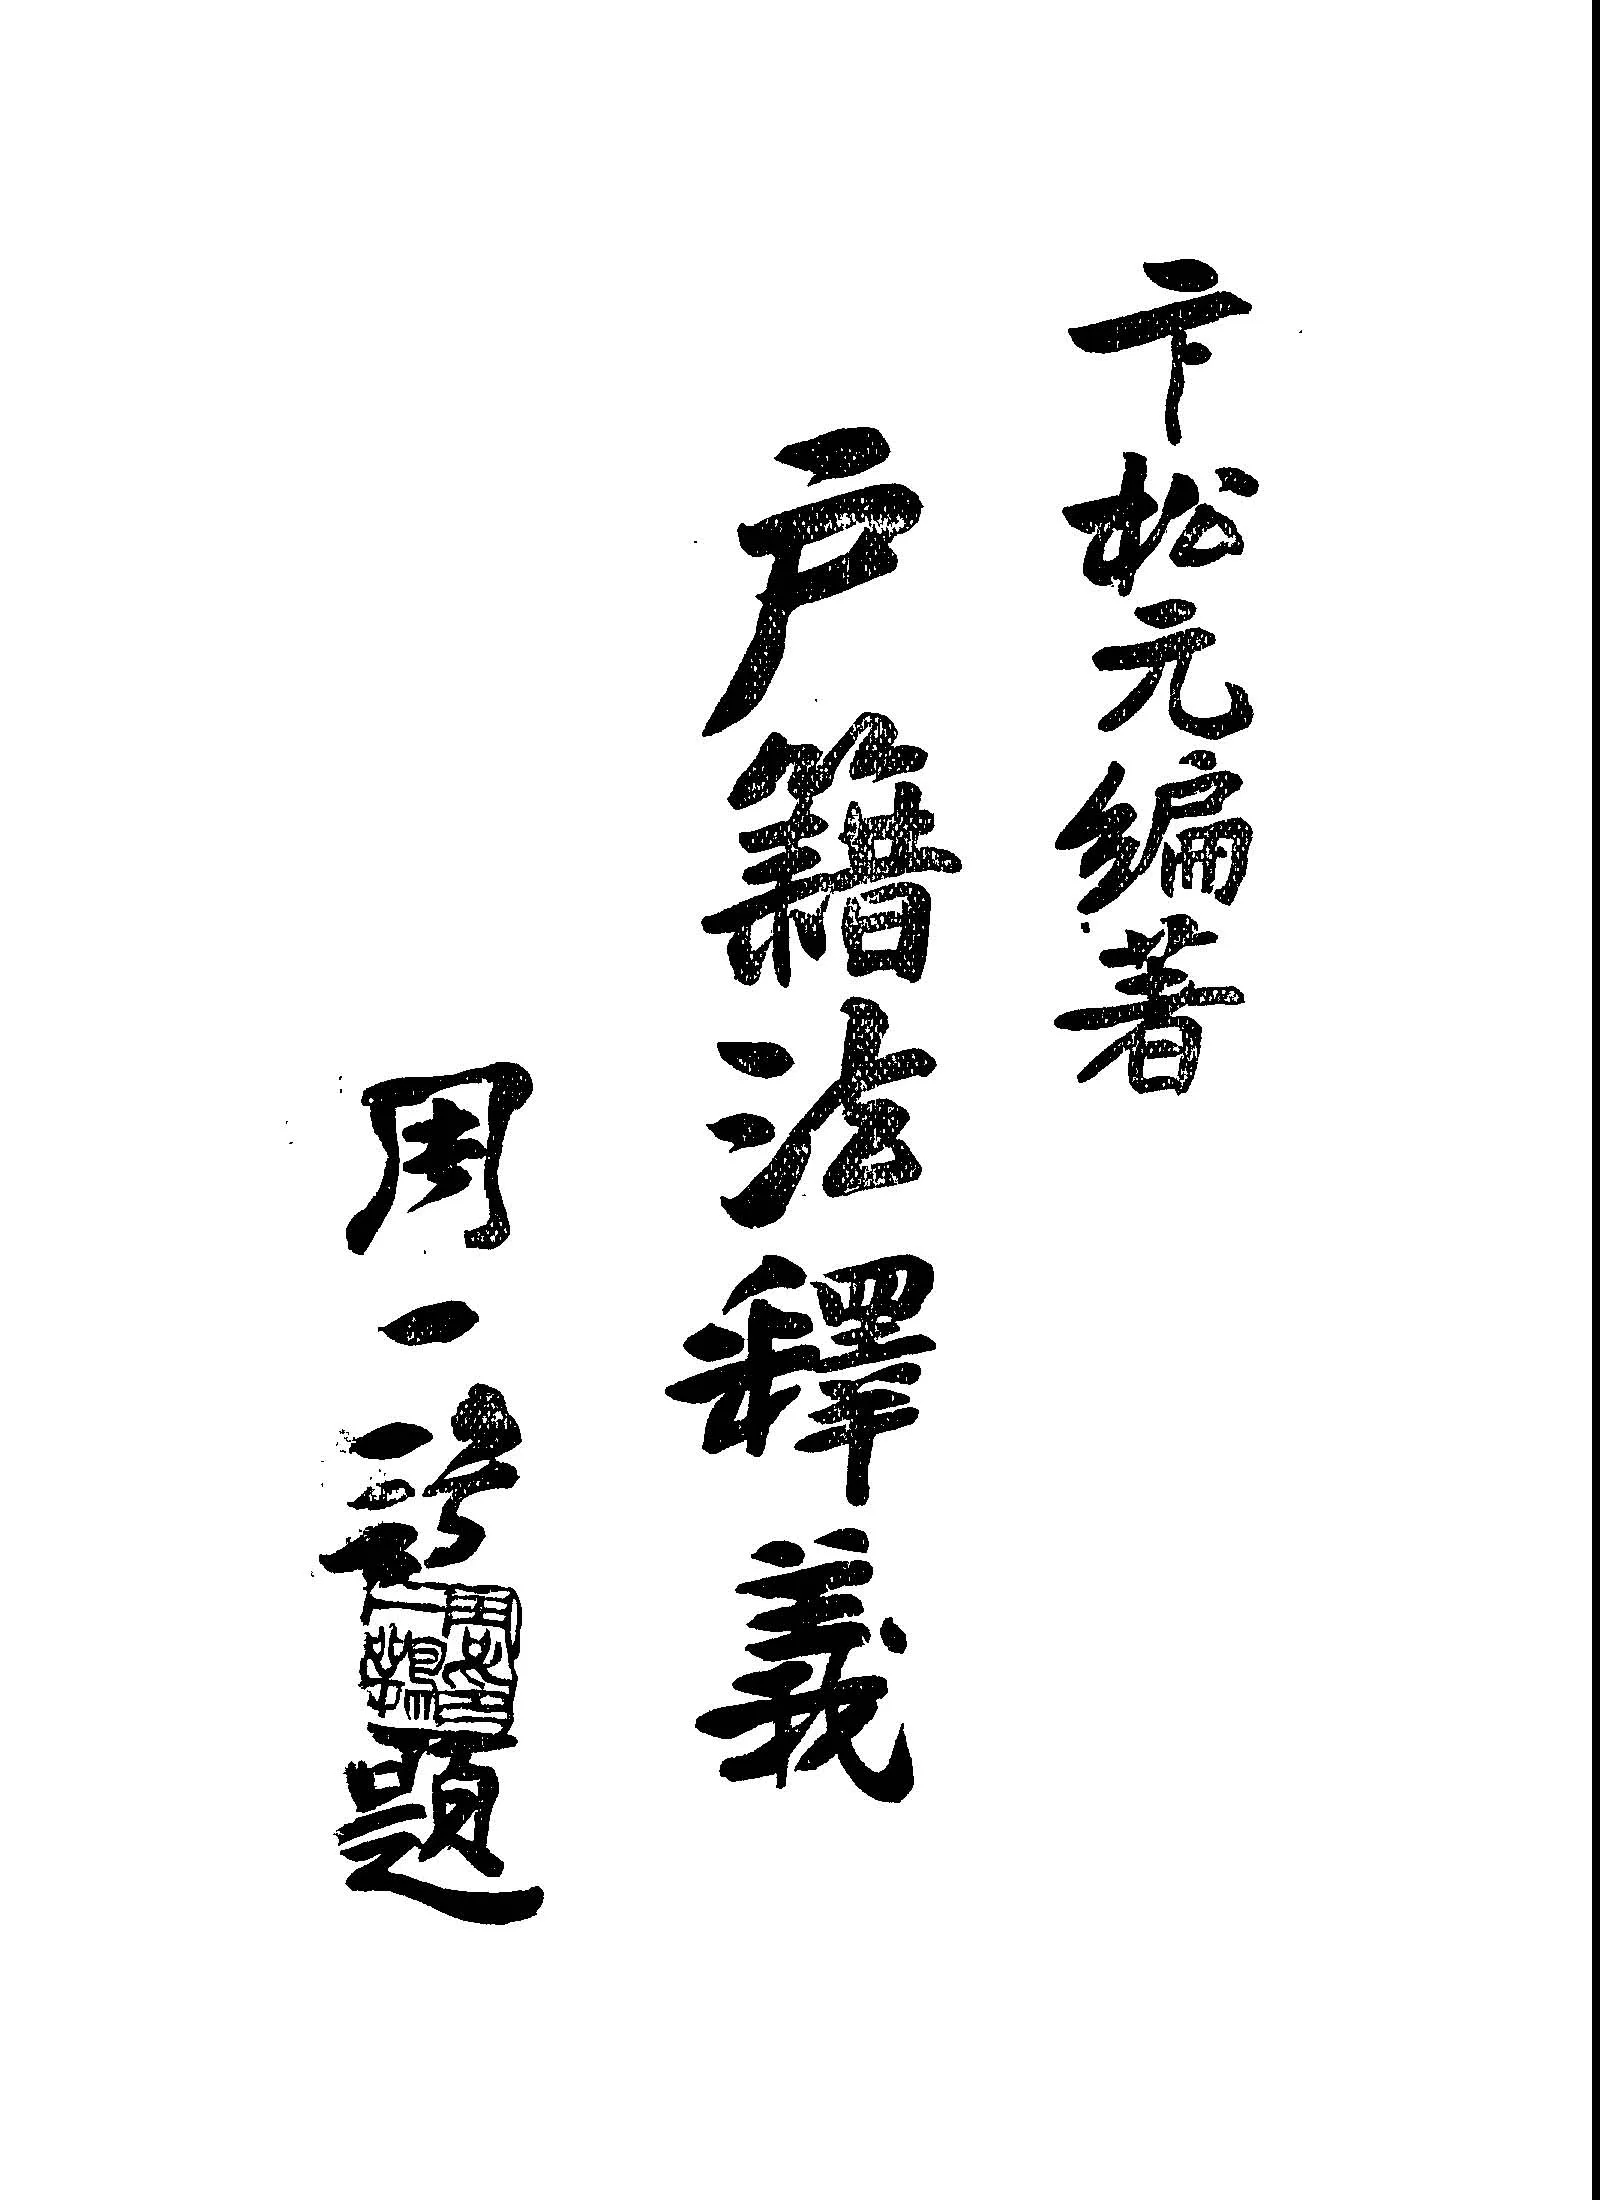 卞松元編著
戶籍法釋義
周一鶚題